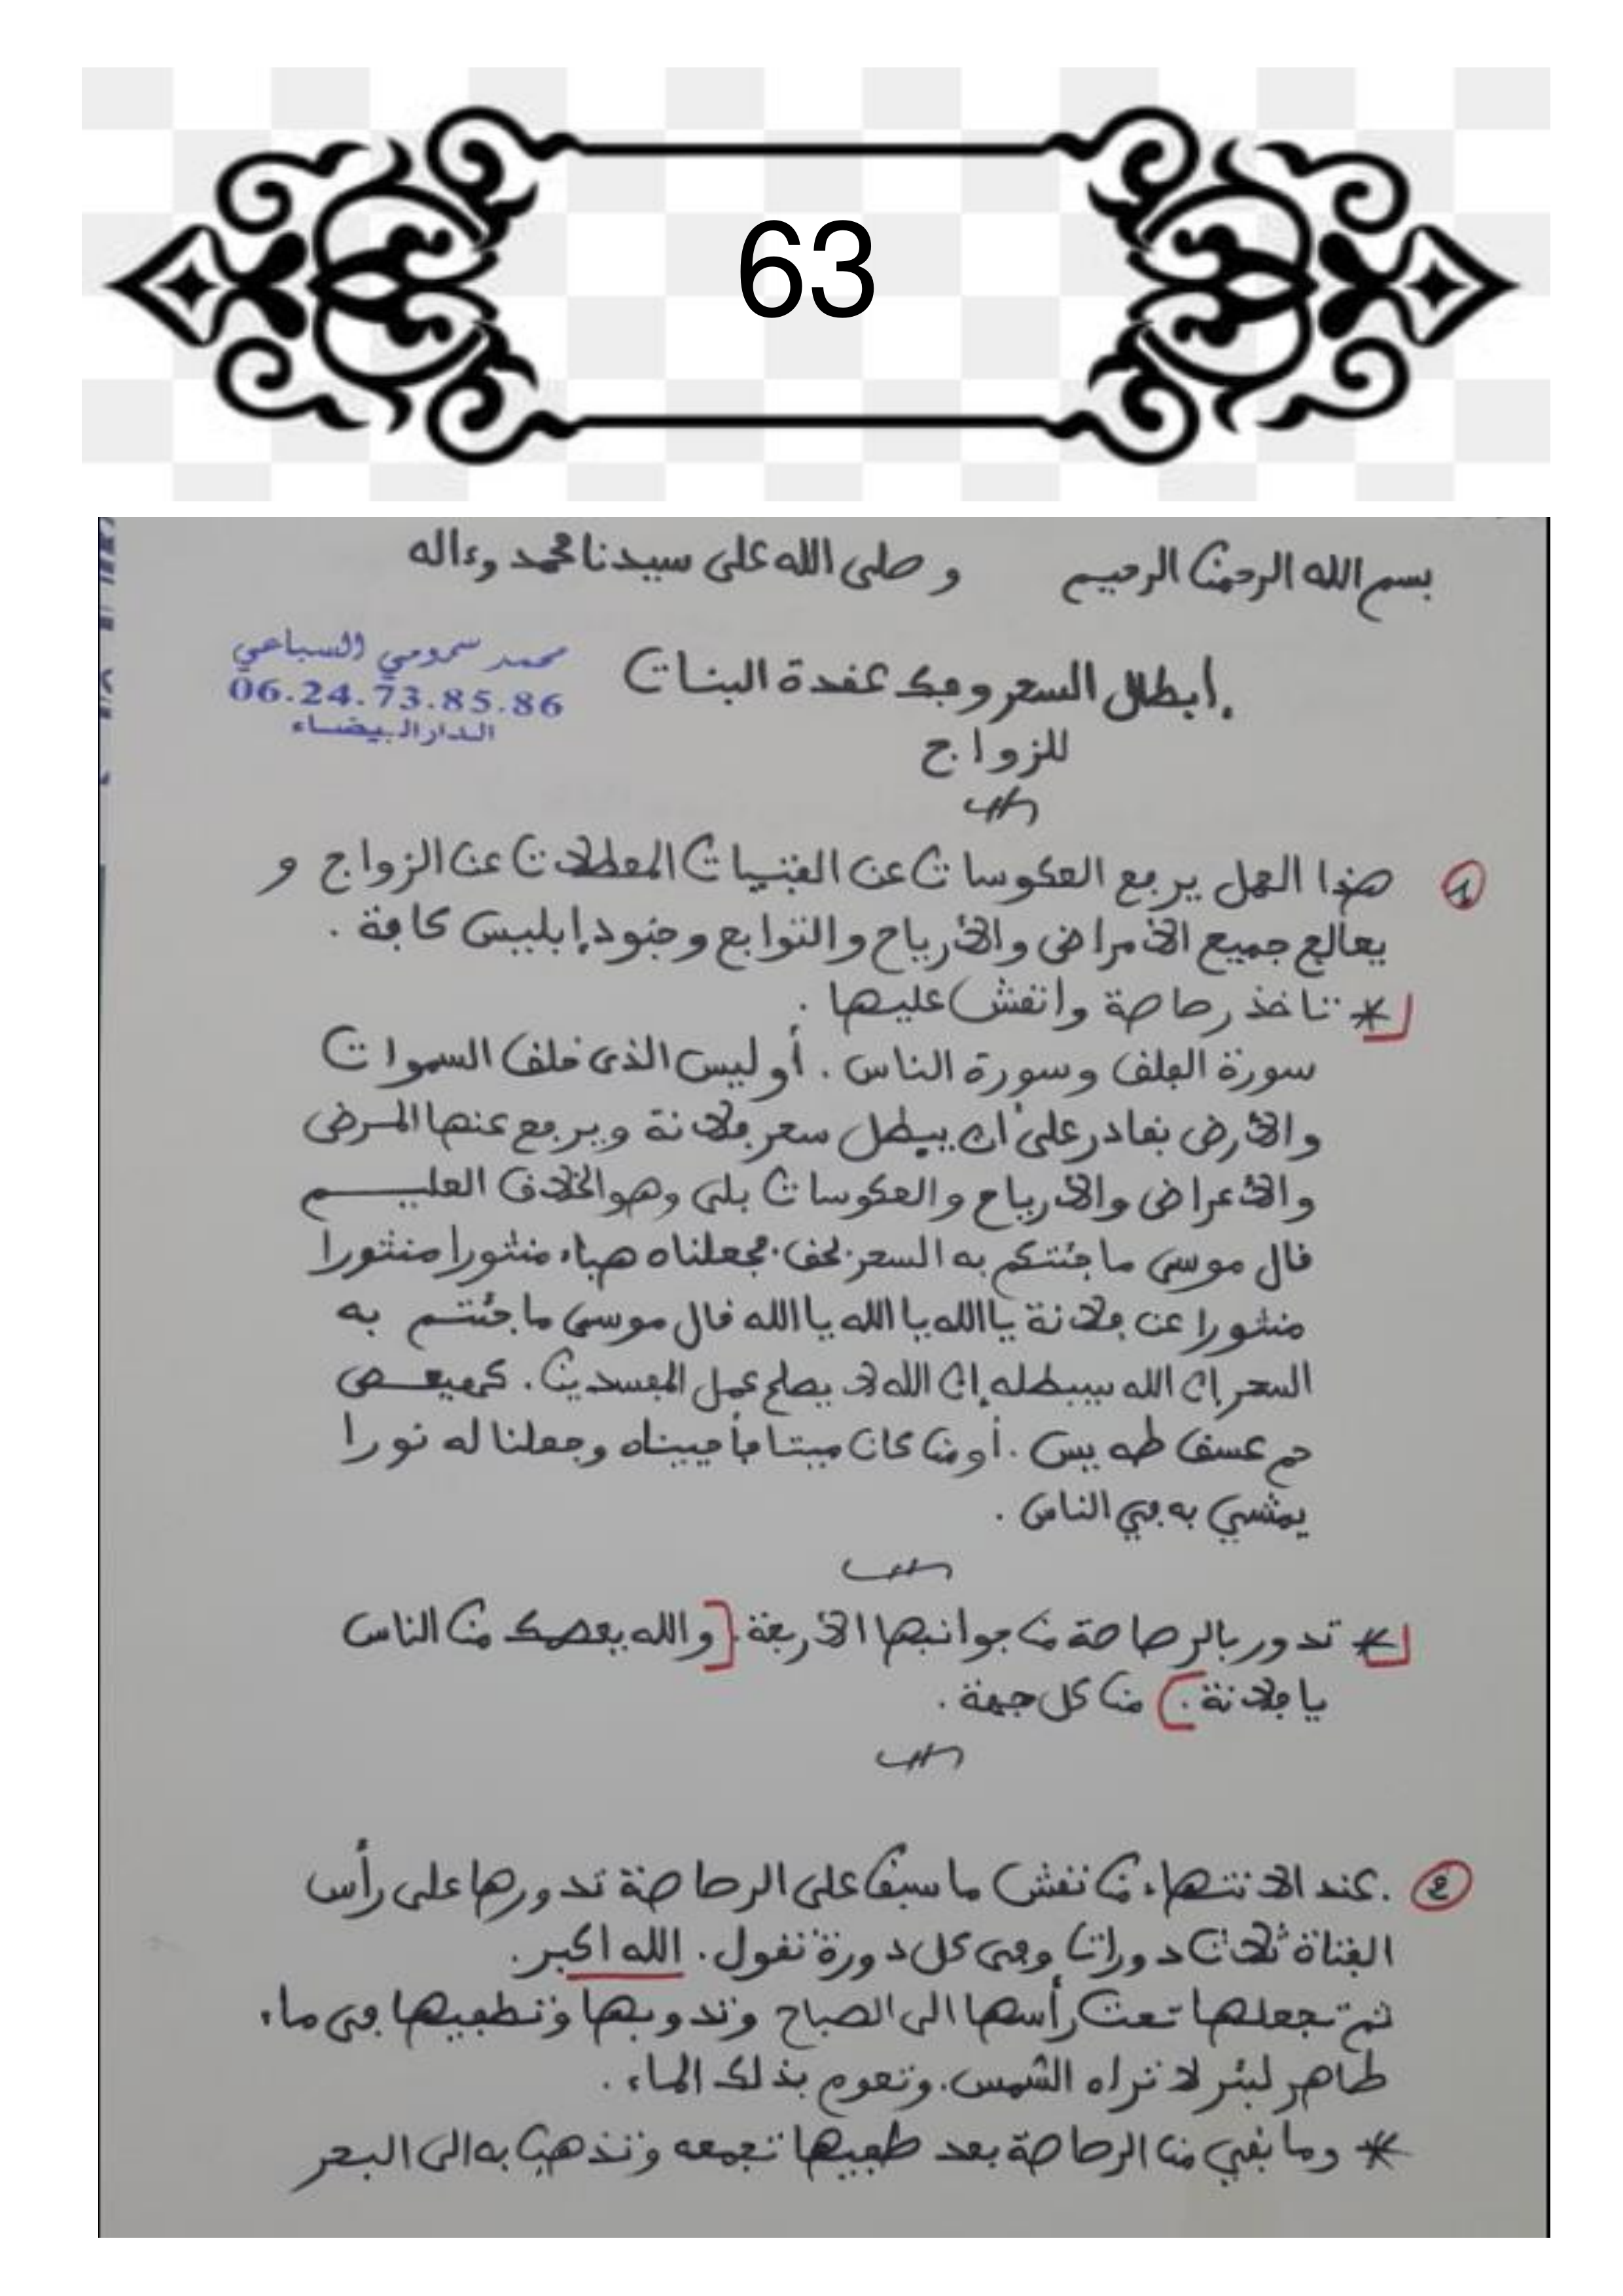 63
بسم الله الرحمن الرحيم وصلى الله على سيدنا محمد وءاله
محمد سمومي السباعي
06.24.73.85.86
الدار البيضاء
إبطال السحر وفك عقدة البنات
للزواج
1 هذا العمل يرفع العكوسات عن الفتيات المعطلات عن الزواج و
يعالج جميع الأمراض والأرياح والتوابع وجنود إبليس كافة .
* تاخذ رصاصة وانقش عليها .
سورة الفلق وسورة الناس . أوليس الذى خلق السموات
والأرض بقادر على أن يبطل سحر فلانة ويرفع عنها المرض
والأعراض والأرياح والعكوسات بلى وهو الخلاق العليم
قال موسى ما جئتكم به السحر بحق فجعلناه هباء منثورا منثورا
منثورا عن فلانة يا الله يا الله يا الله قال موسى ما جئتم به
السحر إن الله سيبطله إن الله لا يصلح عمل المفسدين . كهيعص
حم عسق طه يس . أو من كان ميتا فأحييناه وجعلنا له نورا
يمشي به في الناس .
* تدور بالرصاصة من جوانبها الأربعة . [والله يعصمك من الناس
يا فلانة .] من كل جهة .
2 . عند الانتهاء من نقش ما سبق على الرصاصة تدورها على رأس
الفتاة ثلاث دورات وفى كل دورة تقول . الله اكبر .
ثم تجعلها تحت رأسها الى الصباح وتدوبها وتطفيها فى ماء
طاهر لبئر لا تراه الشمس . وتعوم بذلك الماء .
* وما بقي من الرصاصة بعد طفيها تجمعه وتذهب به الى البحر